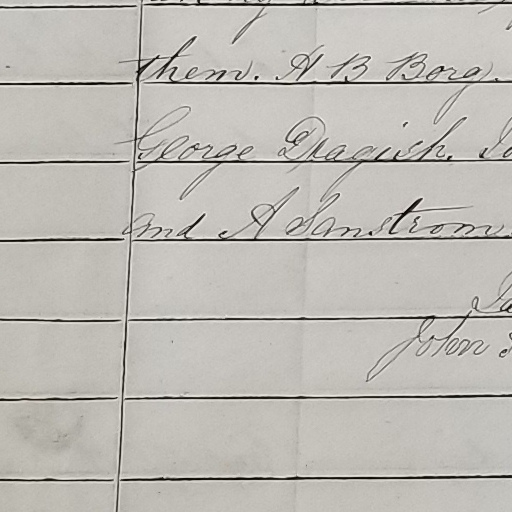 them. A B Borg.
George Dragich.
and A Sanstrom
John